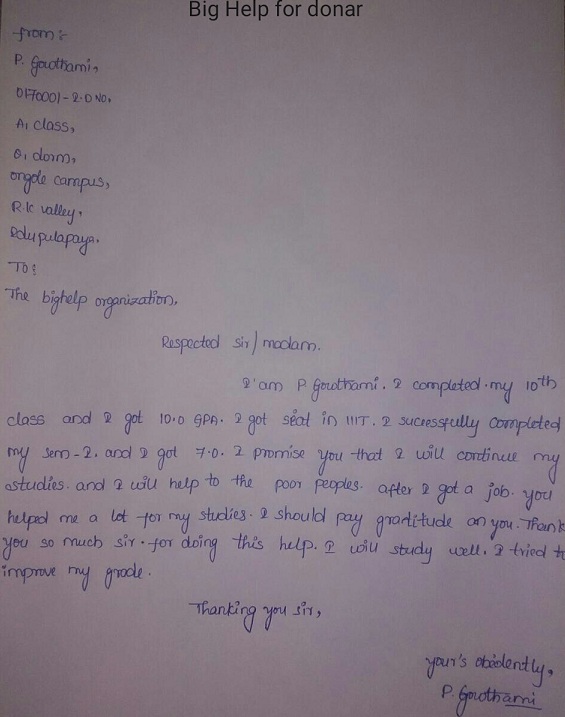 Big Help for donar
from:-
P. Gowthami,
O170001 - I.D NO,
A1 class,
G1 dorm,
ongole campus,
R.K valley,
Idupulapaya.
To:
The bighelp organization,
Respected sir/madam.
I'am P Gowthami. I completed my 10th
class and I got 10.0 GPA. I got seat in IIIT. I sucressfully completed
my sem-2. and I got 7.0. I promise you that I will continue my
astudies. and I will help to the poor peoples. after I got a job. you
helped me a lot for my studies. I should pay graditude on you. Thank
you so much sir. for doing this help. I will study well. I tried to
improve my grade.
Thanking you sir,
your's obidently,
P. Gowthami